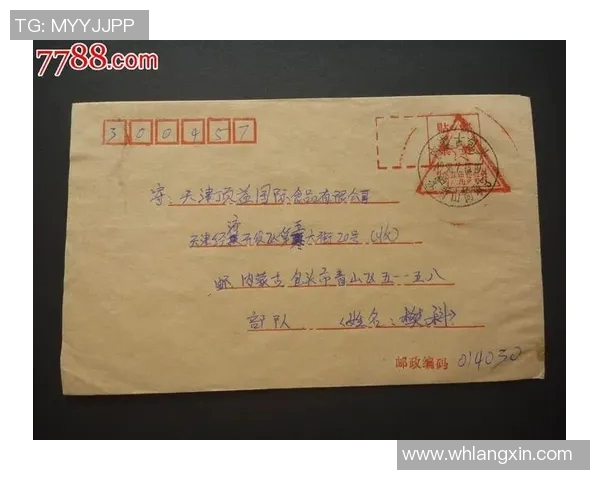 TG: MYYJJPP
7788.com
300457
贴
寄: 天津顶益国际食品有限公司
天津经济开发区第三大街20号 (收)
邮 内蒙古 包头市青山区五一一五八
部队 (姓名: 樊科)
邮政编码 014030
www.whlangxin.com